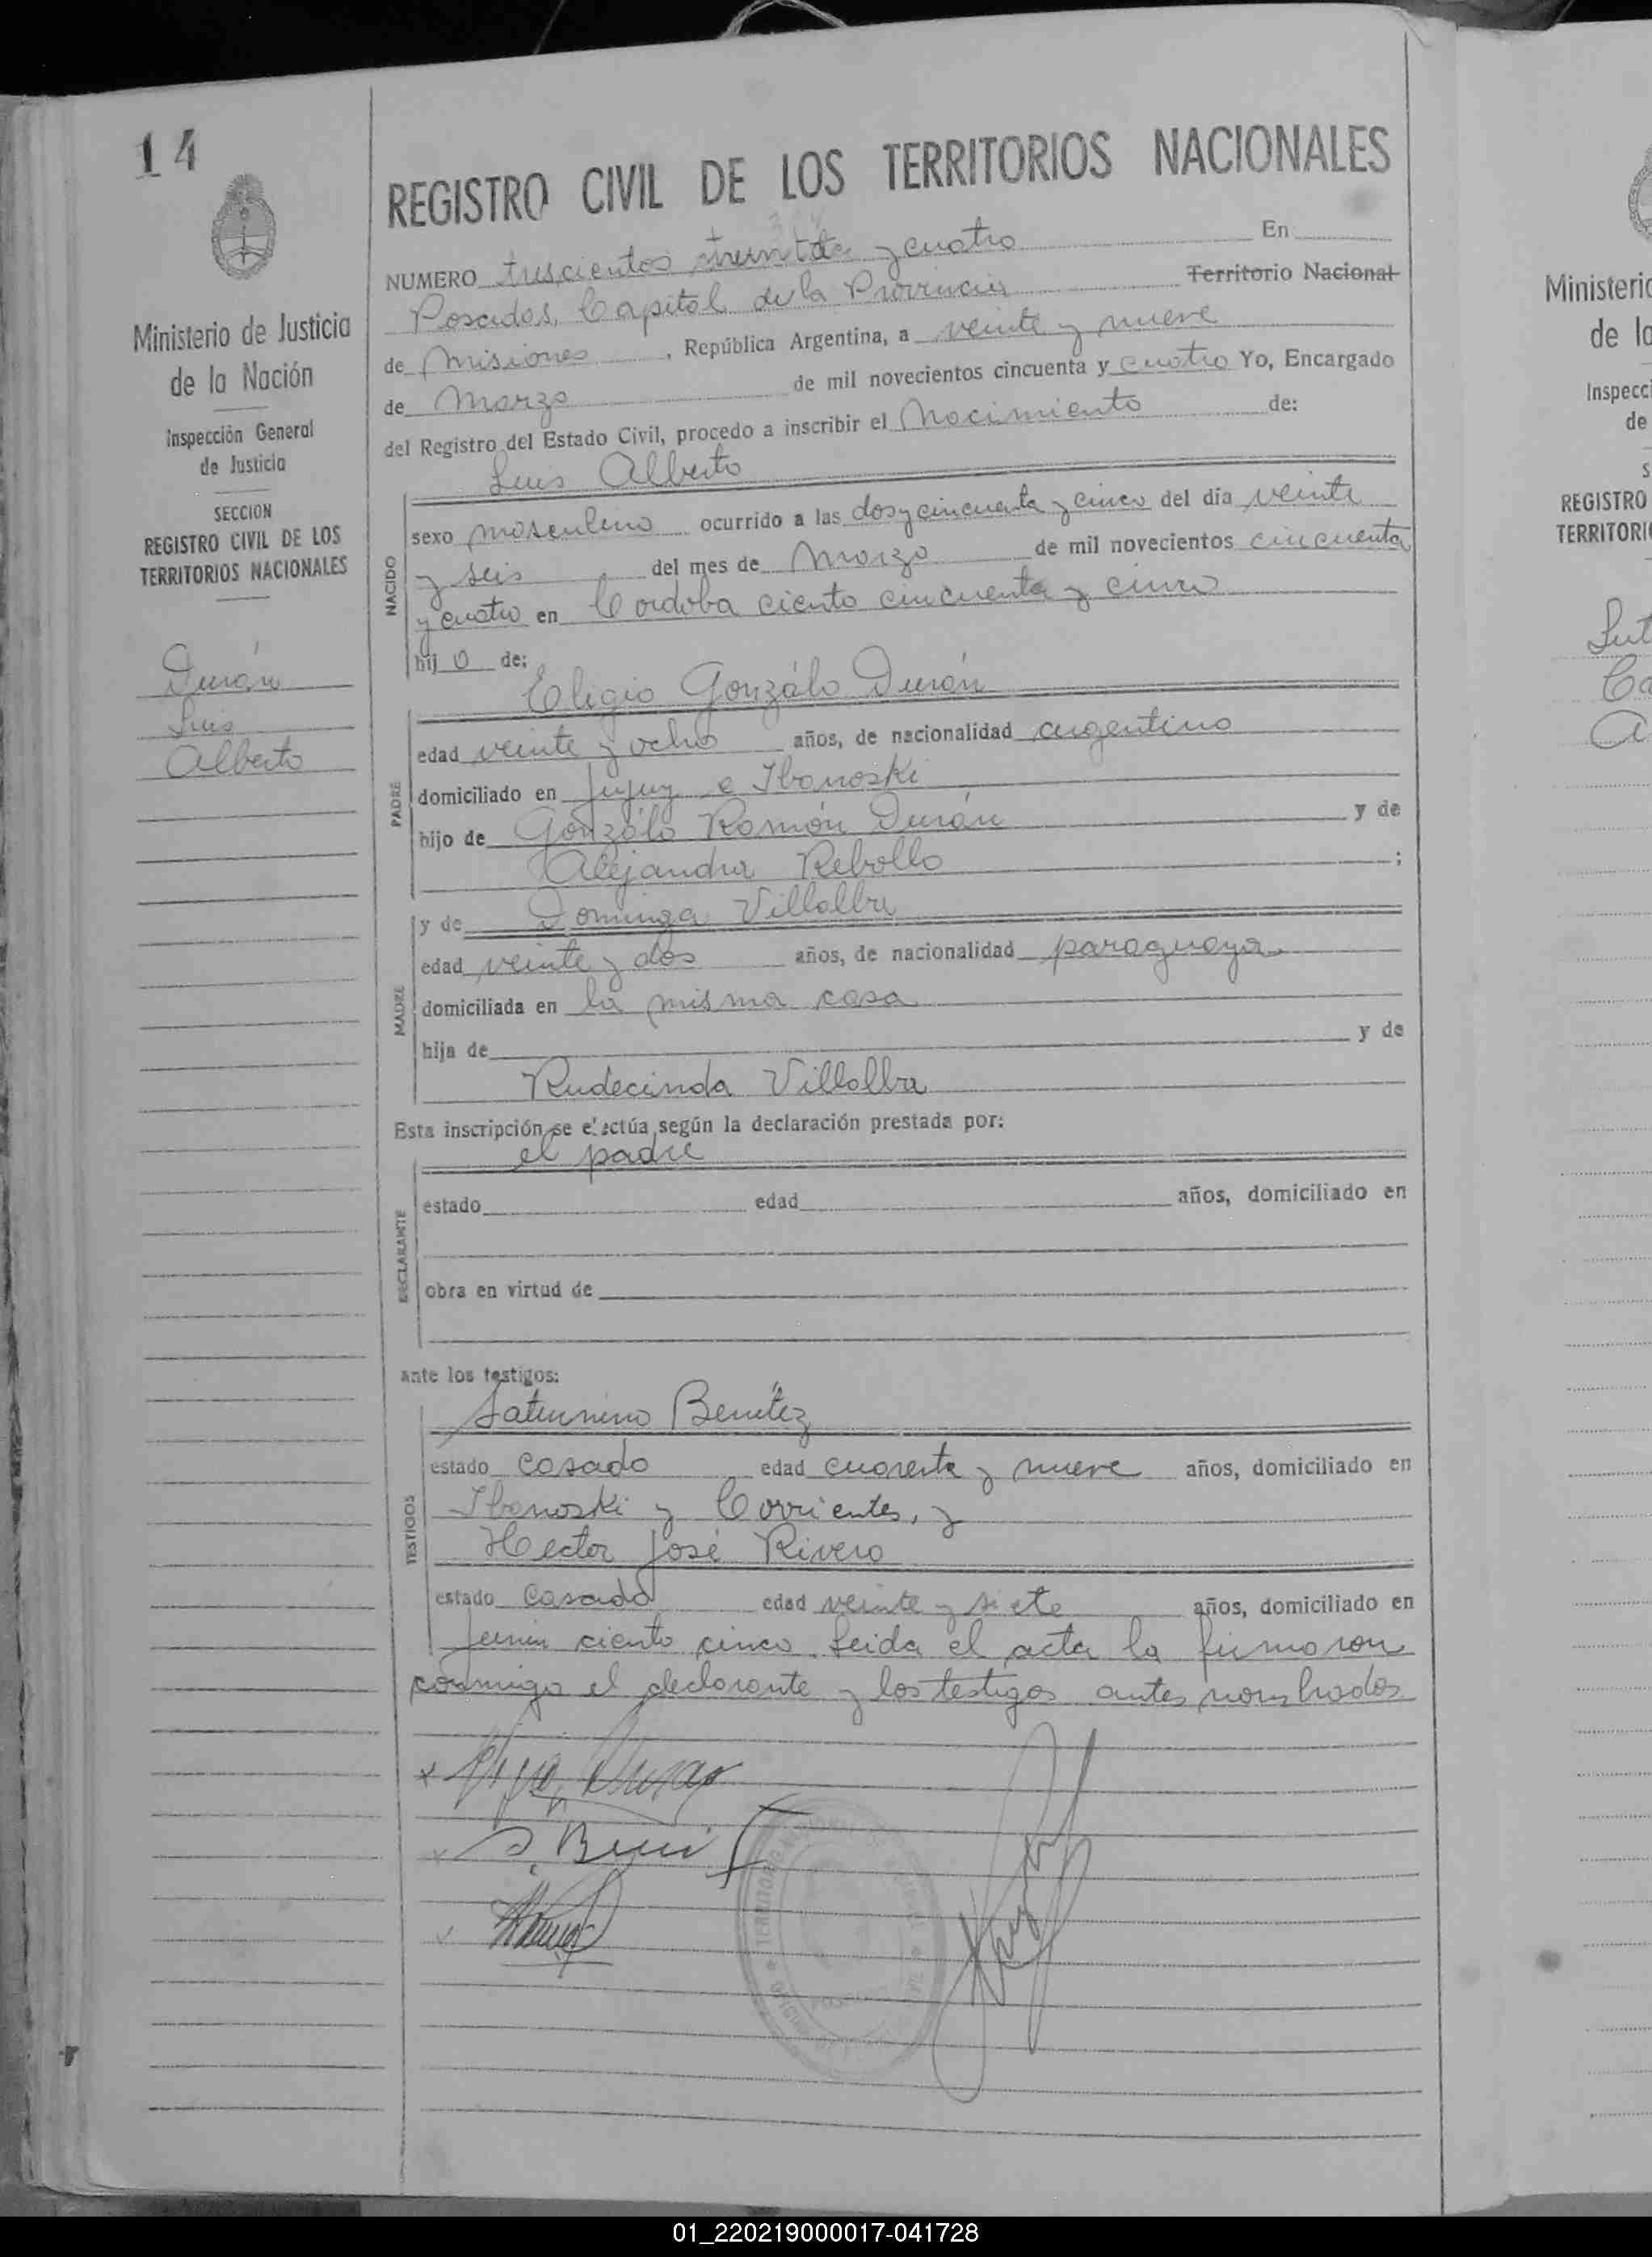 14
Ministerio de Justicia
de la Nación
Inspección General
de Justicia
SECCION
REGISTRO CIVIL DE LOS
TERRITORIOS NACIONALES
Durán
Luis
Alberto
REGISTRO CIVIL DE LOS TERRITORIOS NACIONALES
NUMERO trescientos treinta y cuatro En
Posadas, Capital de la Provincia Territorio Nacional
de Misiones, República Argentina, a veinte y nueve
de Marzo de mil novecientos cincuenta y cuatro Yo, Encargado
del Registro del Estado Civil, procedo a inscribir el Nacimiento de:
Luis Alberto
NACIDO
sexo masculino ocurrido a las dos y cincuenta y cinco del día veinte
y seis del mes de Marzo de mil novecientos cincuenta
y cuatro en Cordoba ciento cincuenta y cinco
hij o de:
Eligio Gonzálo Durán
PADRE
edad veinte y ocho años, de nacionalidad argentino
domiciliado en Jujuy e Ibanoski
hijo de Gonzálo Ramón Durán y de
Alejandra Rebollo ;
MADRE
y de Dominga Villalba
edad veinte y dos años, de nacionalidad paraguaya
domiciliada en la misma casa
hija de y de
Rudecinda Villalba
Esta inscripción se efectúa según la declaración prestada por:
el padre
DECLARANTE
estado edad años, domiciliado en
obra en virtud de
ante los testigos:
TESTIGOS
Saturnino Benítez
estado casado edad cuarenta y nueve años, domiciliado en
Ibanoski y Corrientes, y
Hector José Rivero
estado casado edad veinte y siete años, domiciliado en
Junin ciento cinco. Leida el acta la firmaron
conmigo el declarante y los testigos antes nombrados
Ministerio
de la
Inspecci
de
S
REGISTRO
TERRITORI
01_220219000017-041728